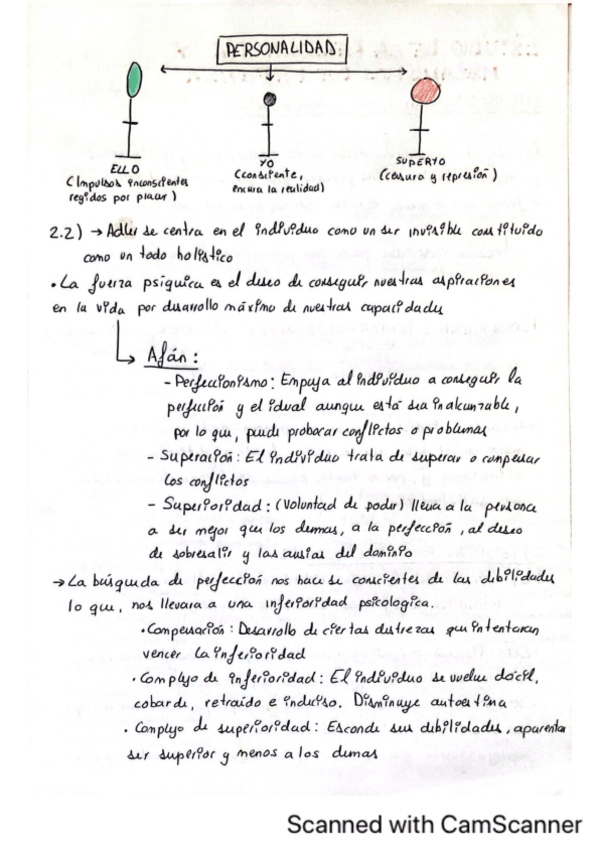 PERSONALIDAD
ELLO
(Impulsos inconscientes
regidos por placer)
YO
(consciente,
encara la realidad)
SUPERYO
(censura y represión)
2.2) → Adler se centra en el individuo como un ser invisible constituido
como un todo holístico
• La fuerza psiquica es el deseo de conseguir nuestras aspiraciones
en la vida por desarrollo máximo de nuestras capacidades
Afán:
- Perfeccionismo: Empuja al individuo a conseguir la
perfección y el idual aunque está sea inalcanzable,
por lo que, puede probocar conflictos o problemas
- Superación: El individuo trata de superar o compesar
los conflictos
- Superioridad: (Voluntad de poder) lleva a la persona
a ser mejor que los demas, a la perfección, al deseo
de sobresalir y las ansias del dominio
→ La búsqueda de perfección nos hace se conscientes de las debilidades
lo que, nos llevara a una inferioridad psicologica.
• Compensación: Desarrollo de ciertas destrezas que intentaran
vencer la inferioridad
• Complejo de inferioridad: El individuo se vuelve dócil,
cobarde, retraído e indeciso. Disminuye autoestima
• Complejo de superioridad: Esconde sus debilidades, aparentar
ser superior y menos a los demas
Scanned with CamScanner